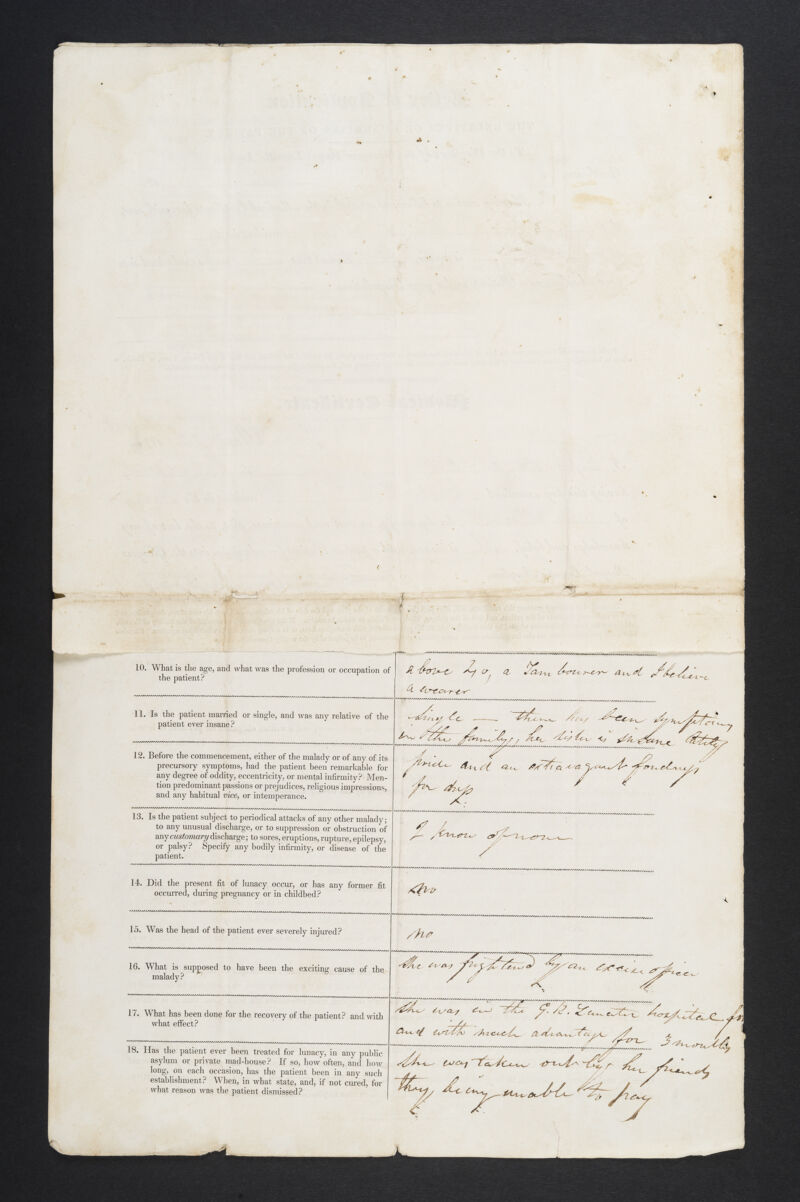 10. What is the age, and what was the profession or occupation of
the patient?
above 40, a Tambourer and I believe
a weaver
11. Is the patient married or single, and was any relative of the
patient ever insane?
Single — there has been symptoms
in the family, her sister is insane
12. Before the commencement, either of the malady or of any of its
precursory symptoms, had the patient been remarkable for
any degree of oddity, eccentricity, or mental infirmity? Men-
tion predominant passions or prejudices, religious impressions,
and any habitual vice, or intemperance.
pride and an extravagant fondness
for dress
13. Is the patient subject to periodical attacks of any other malady;
to any unusual discharge, or to suppression or obstruction of
any customary discharge; to sores, eruptions, rupture, epilepsy,
or palsy? Specify any bodily infirmity, or disease of the
patient.
I know of none
14. Did the present fit of lunacy occur, or has any former fit
occurred, during pregnancy or in childbed?
no
15. Was the head of the patient ever severely injured?
no
16. What is supposed to have been the exciting cause of the
malady?
She was frightened by an excise officer
17. What has been done for the recovery of the patient? and with
what effect?
She was in the G. R. Lunatic hospital for
and with much advantage for 3 months
18. Has the patient ever been treated for lunacy, in any public
asylum or private mad-house? If so, how often, and how
long, on each occasion, has the patient been in any such
establishment? When, in what state, and, if not cured, for
what reason was the patient dismissed?
She was taken out by her friends
they being unable to pay